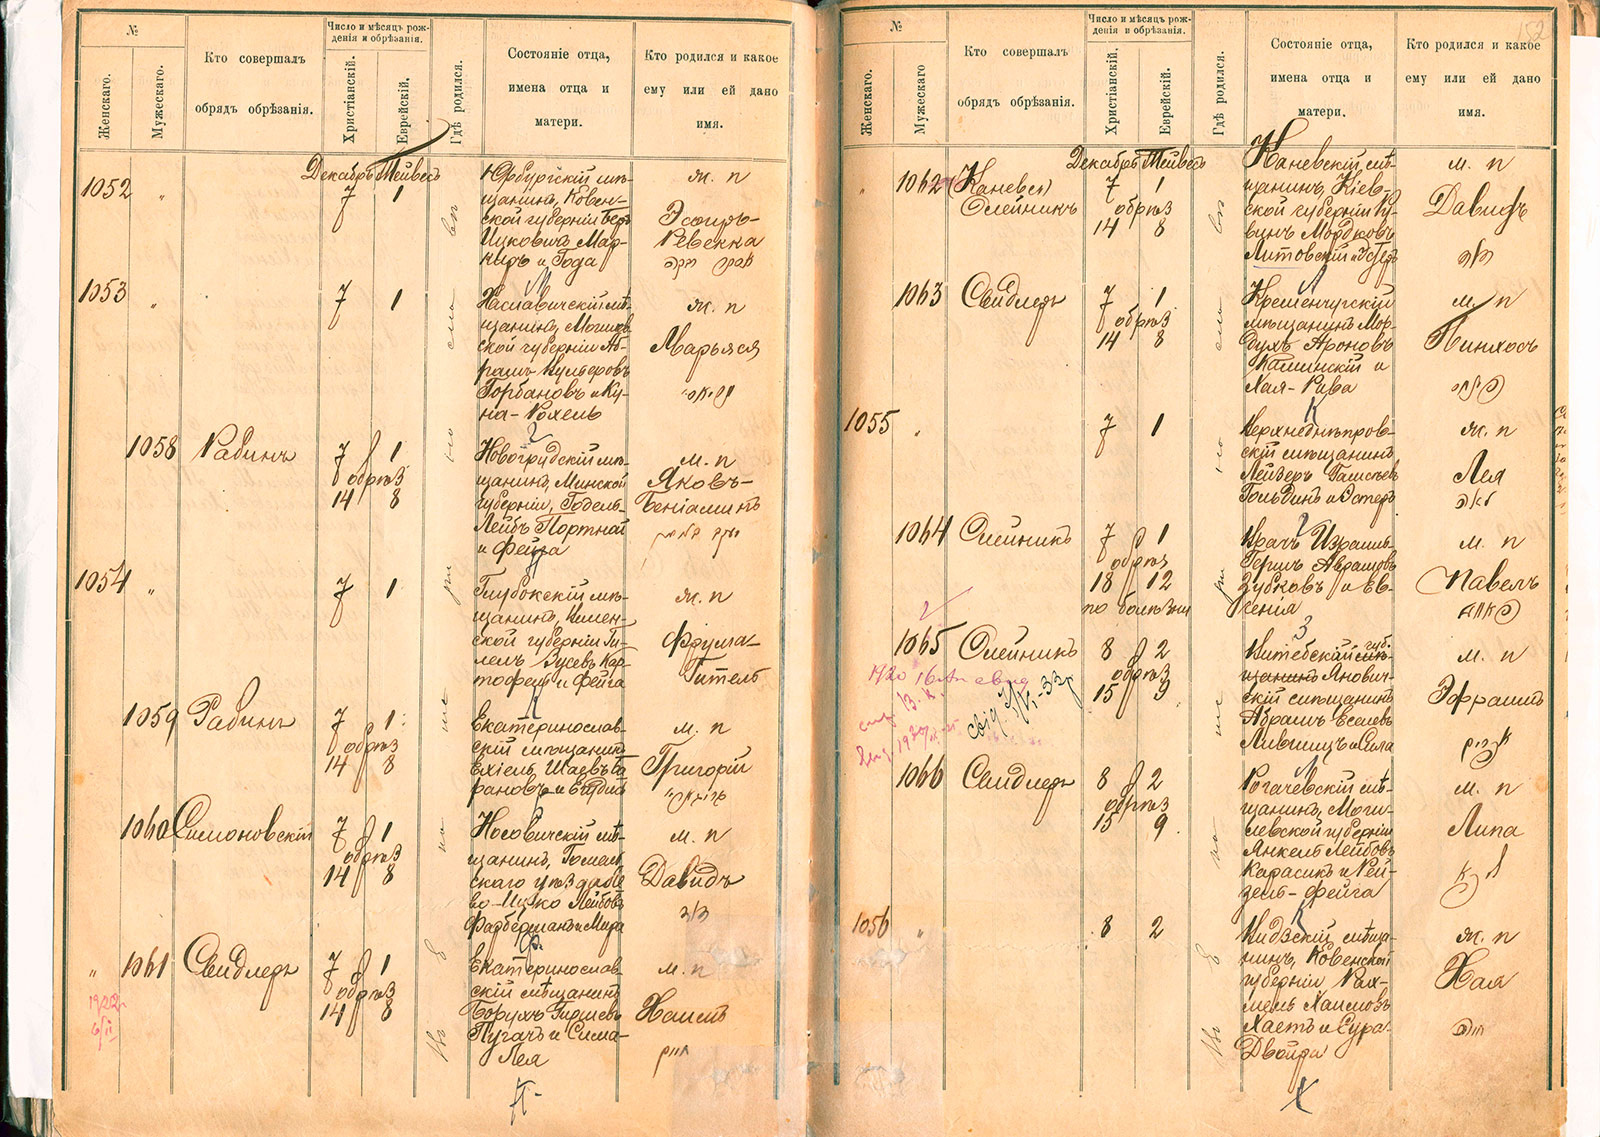 №
Женскаго.
Мужескаго.
Кто совершалъ
обрядъ обрѣзанія.
Число и мѣсяцъ рож-
денія и обрѣзанія.
Христіанскій.
Еврейскій.
Гдѣ родился.
Состояніе отца,
имена отца и
матери.
Кто родился и какое
ему или ей дано
имя.
Декабрь Тейвесъ
1052 "
7 1
Юрбургскій мѣ-
щанинъ, Ковен-
ской губерніи Беръ
Ицковичъ Мар-
и Года
ж. п
Эсѳирь-
Ревекка
1053 "
7 1
щанинъ, Могилев-
ской губерніи Аб-
рамъ
Горбановъ и Ку-
на-Рохель
ж. п
Марьяся
1058 Рабинъ
7 1
обрѣз
14 8
Новогрудскій мѣ-
щанинъ, Минской
губерніи, Годель-
Лейбъ Портной
и Фейга
м. п
Яковъ-
Беніаминъ
1054 "
7 1
Глубокскій мѣ-
щанинъ, Вилен-
ской губерніи Ги-
лель Зусевъ Кар-
тофель и Фейга
ж. п
Фрума-
Гитель
1059 Рабинъ
7 1
обрѣз
14 8
Екатеринослав-
скій мѣщанинъ
Ехіель Шаевъ
м. п
Григорій
1060 Симоновскій
7 1
обрѣз
14 8
Носовичскій мѣ-
щанинъ, Гомель-
скаго уѣзда
Лейбовъ
Фарберманъ и Мира
м. п
Давидъ
דוד
" 1061 Свидлеръ
7 1
обрѣз
14 8
Екатеринослав-
скій мѣщанинъ
Борухъ Гиршевъ
Пугачъ и Сима-
Лея
м. п
Хаимъ
חיים
1922
6/II
152
№
Женскаго.
Мужескаго
Кто совершалъ
обрядъ обрѣзанія.
Число и мѣсяцъ рож-
денія и обрѣзанія.
Христіанскій.
Еврейскій.
Гдѣ родился.
Состояніе отца,
имена отца и
матери.
Кто родился и какое
ему или ей дано
имя.
Декабрь Тейвесъ
" 1062
Олейникъ
7 1
обрѣз
14 8
Каневскій мѣ-
щанинъ, Кіев-
ской губерніи Ру-
винъ Мордковъ
Литовскій и Эстеръ
м. п
Давидъ
דוד
1063 Свидлеръ
7 1
обрѣз
14 8
Кременчугскій
мѣщанинъ Мор-
духъ Ароновъ
Каминскій и
Хая-Рива
м. п
Пинхосъ
1055 "
7 1
Верхнеднѣпров-
скій мѣщанинъ
Лейзеръ
Гольдинъ и Эстеръ
ж. п
Лея
לאה
1064 Олейникъ
7 1
обрѣз
18 12
по болѣзни
Врачъ Израиль-
Гершъ Абрамовъ
Зубковъ и Ев-
генія
м. п
Павелъ
1065 Олейникъ
8 2
обрѣз
15 9
Витебскій губ.
щанинъ Янович-
скій мѣщанинъ
Абрамъ Есаевъ
Лившицъ и
м. п
Эфраимъ
אפרים
1066 Свидлеръ
8 2
обрѣз
15 9
Рогачевскій мѣ-
щанинъ, Моги-
левской губерніи
Янкель Лейбовъ
Карасикъ и Рей-
зель-Фейга
м. п
Липа
1056 "
8 2
Видзскій мѣща-
нинъ, Ковенской
губерніи Рах-
мель Хаимовъ
Хаетъ и Сура-
Двойра
ж. п
Хая
חיה